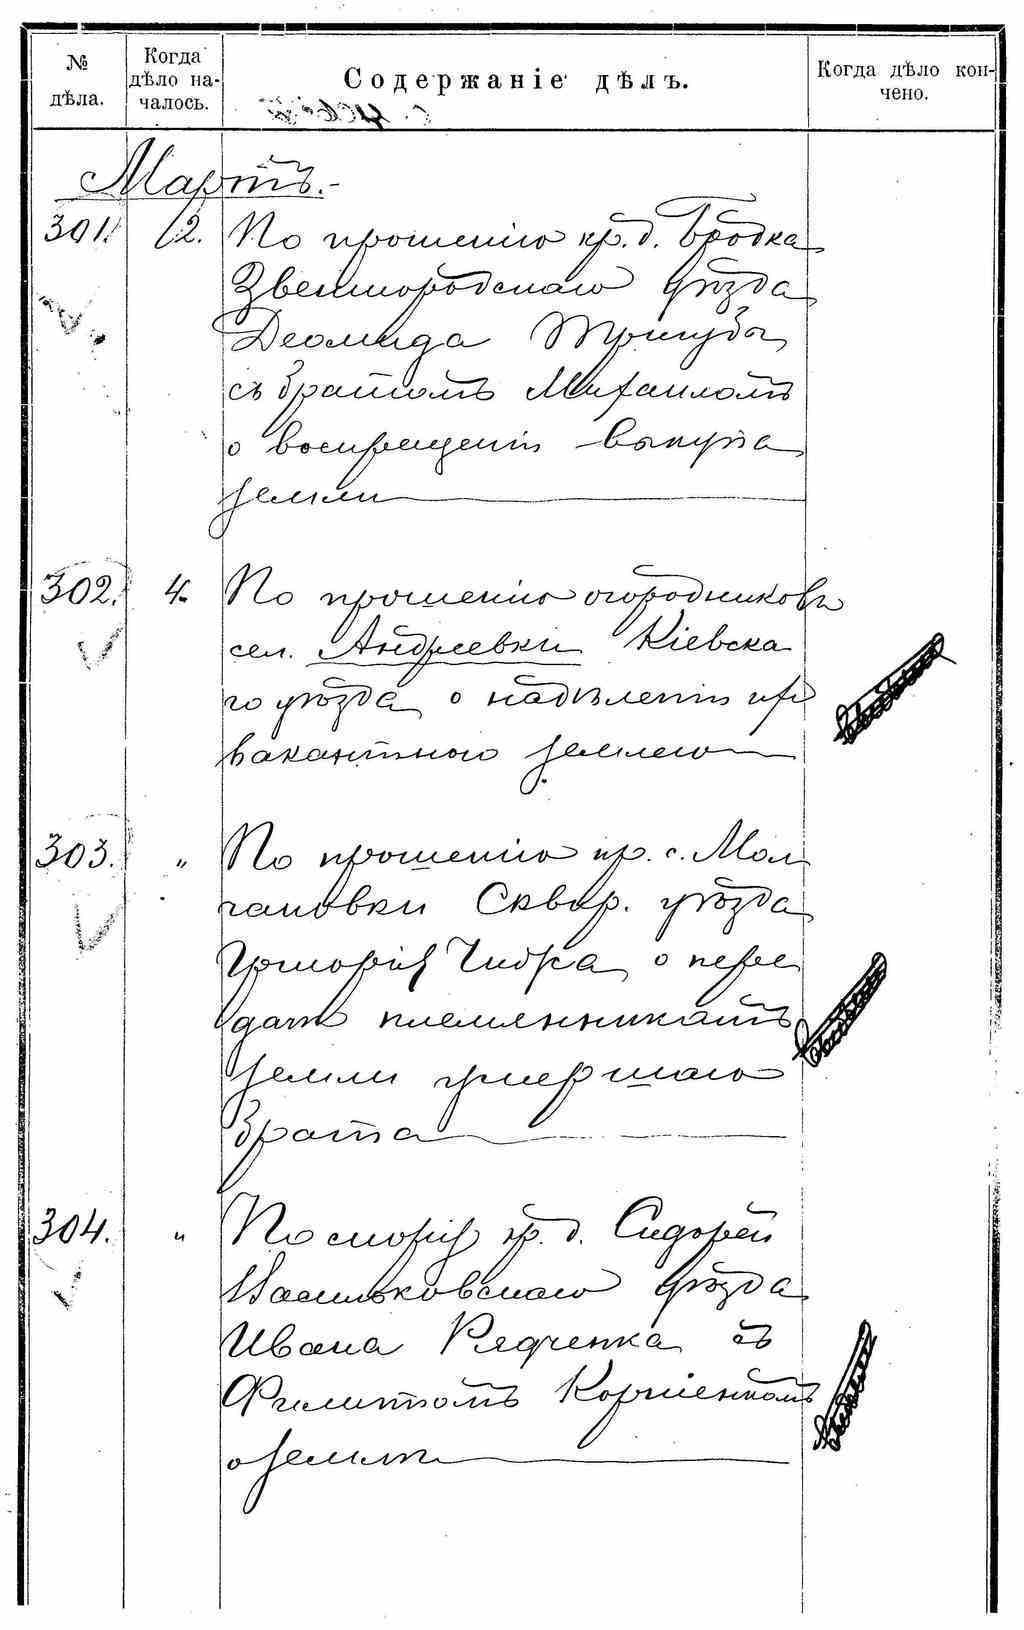 № дѣла.
Когда дѣло на-
чалось.
Содержаніе дѣлъ.
Когда дѣло кон-
чено.
Мартъ.-
301. 2. По прошенію кр. д. Бродка
Звенигородскаго уѣзда
Деомида
съ братомъ Михаиломъ
о воспрещеніи выкупа
земли
302. 4. По прошенію огородниковъ
сел. Андреевки Кіевска
го уѣзда о надѣленіи ихъ
вакантною землею
303. " По прошенію кр. с. Мол
чановки Сквир. уѣзда
Григорія о пере
дачѣ племянникамъ
земли умершаго
брата
304. " По спору кр. д.
Васильковскаго уѣзда
Ивана Рядченка съ
Филиппомъ Корніенкомъ
о землѣ